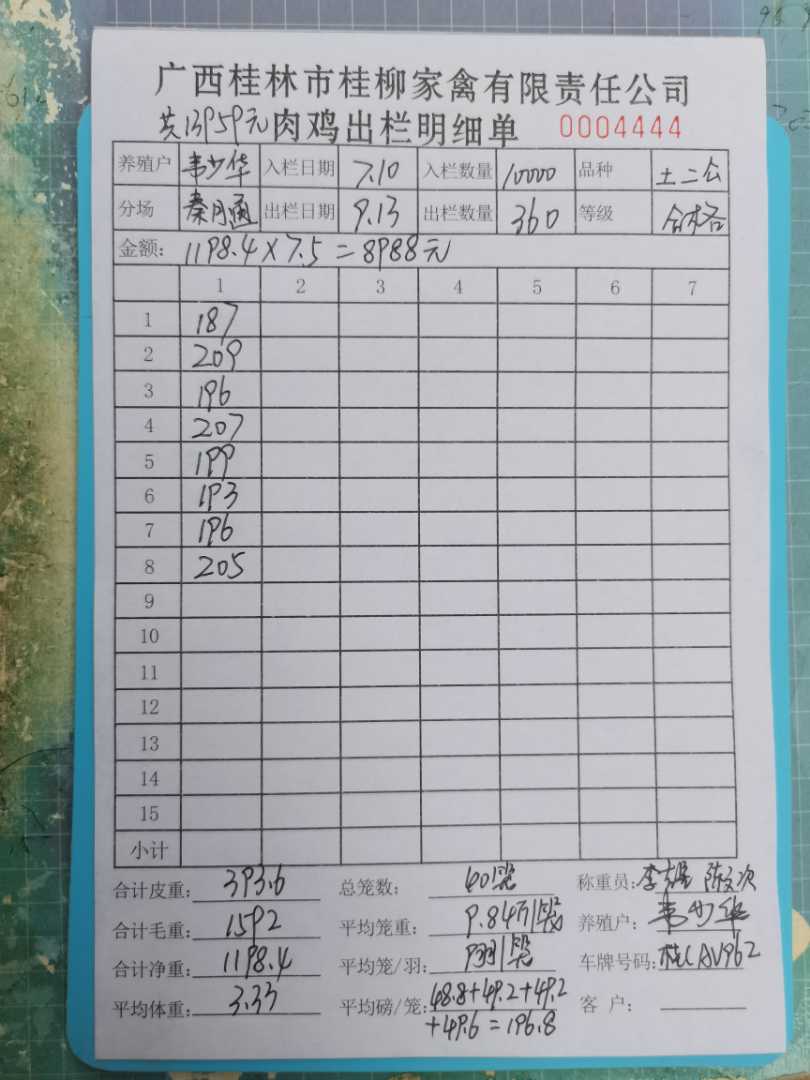 广西桂林市桂柳家禽有限责任公司
共13959元 肉鸡出栏明细单 0004444
养殖户 韦少华 入栏日期 7.10 入栏数量 10000 品种 土二公
分场 秦月通 出栏日期 9.13 出栏数量 360 等级 合格
金额: 1198.4×7.5=8988元
1 2 3 4 5 6 7
1 187
2 209
3 196
4 207
5 199
6 193
7 196
8 205
9
10
11
12
13
14
15
小计
合计皮重: 393.6 总笼数: 40笼 称重员:
合计毛重: 1592 平均笼重: 9.84斤/笼 养殖户: 韦少华
合计净重: 1198.4 平均笼/羽: 9羽/笼 车牌号码: 桂CAV962
平均体重: 3.33 平均磅/笼: 48.8+49.2+49.2 客 户:
+49.6=196.8